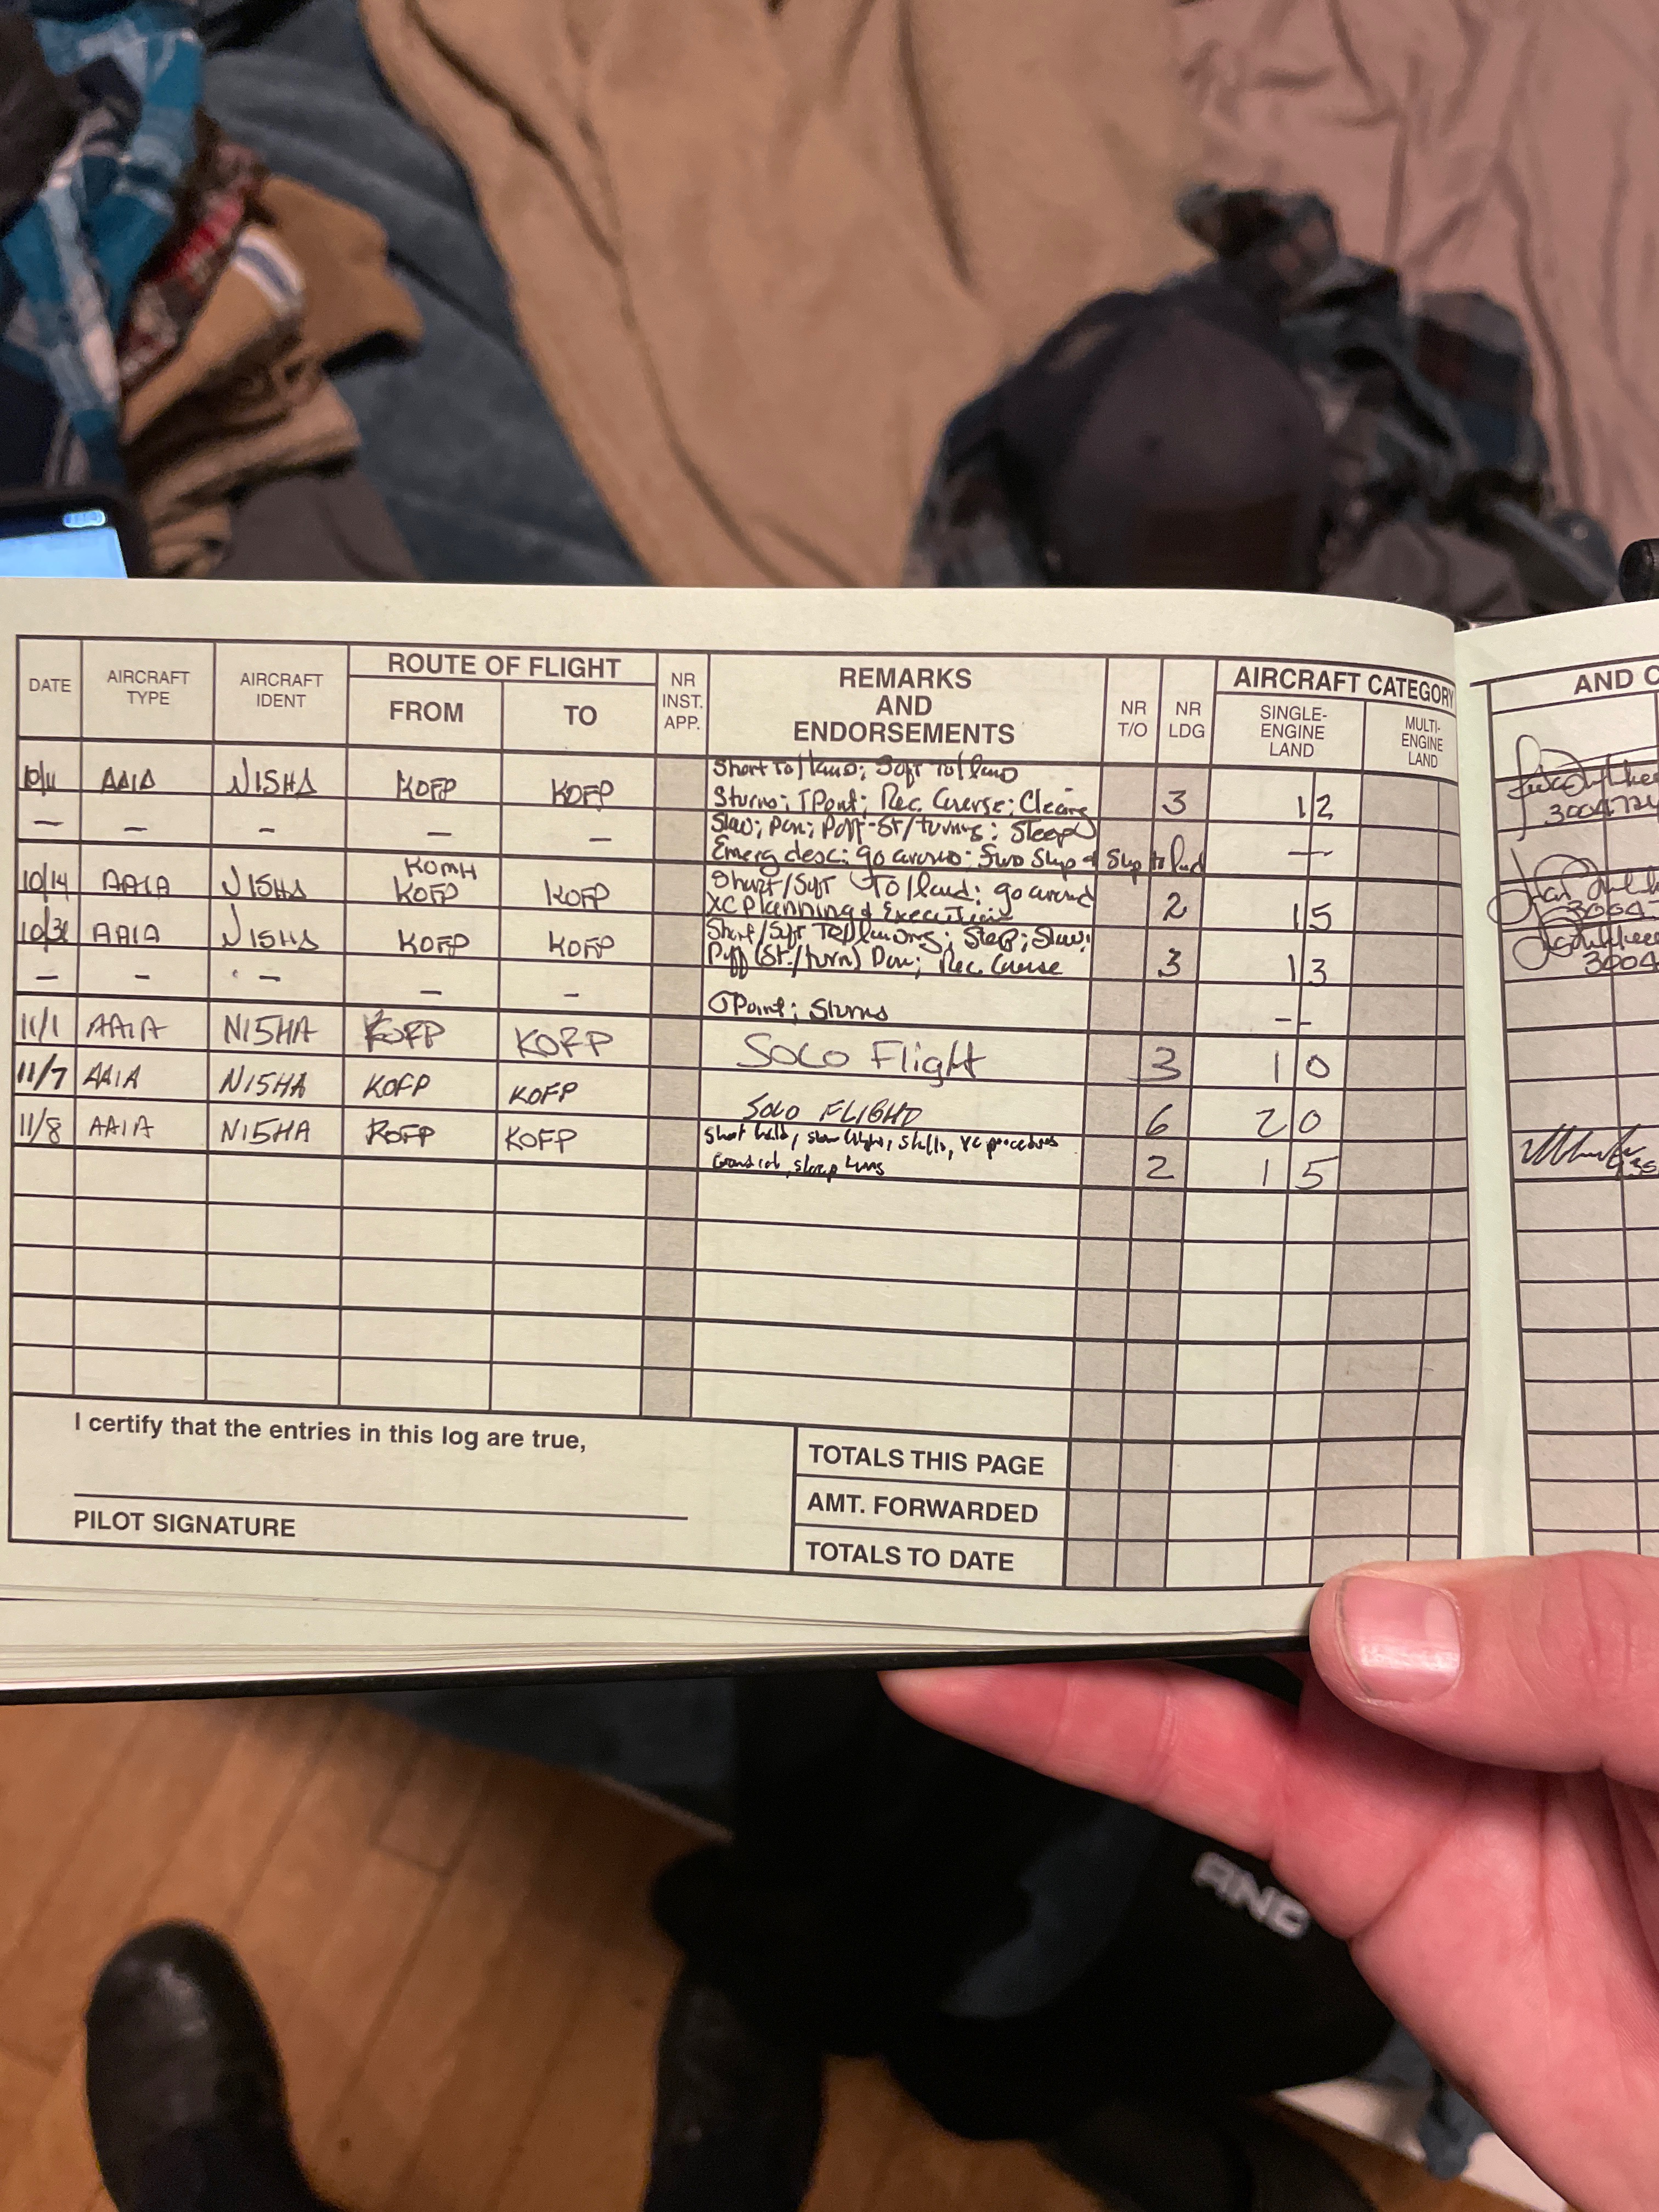 DATE AIRCRAFT TYPE AIRCRAFT IDENT ROUTE OF FLIGHT NR INST. APP. REMARKS AND ENDORSEMENTS NR T/O NR LDG AIRCRAFT CATEGORY AND C
FROM TO SINGLE-ENGINE LAND MULTI-ENGINE LAND
Short To/land; Soft To/land
10/11 AA1A N15HA KOFP KOFP Sturns; TPoint; Rec. Course; Clearing 3 1 2
— — — — — Slow; Pon; Poff-St/turns; Steep —
Emerg desc; go around; Fwd Slip & Slip to land
KOMH
10/14 AA1A N15HA KOFP KOFP Short/Soft To/land; go around 2 1 5
XC Planning & Execution
10/31 AA1A N15HA KOFP KOFP Short/Soft TO/landings; Steep; Slow; 3 1 3
Poff (St./turn) Pon; Rec. Course
— — — — — TPoint; Sturns — —
11/1 AA1A N15HA KOFP KOFP SOLO Flight 3 1 0
11/7 AA1A N15HA KOFP KOFP SOLO FLIGHT 6 2 0
11/8 AA1A N15HA KOFP KOFP Short field, slow flight, stalls, xc procedures 2 1 5
Ground ref, steep turns
I certify that the entries in this log are true,
PILOT SIGNATURE
TOTALS THIS PAGE
AMT. FORWARDED
TOTALS TO DATE
AND